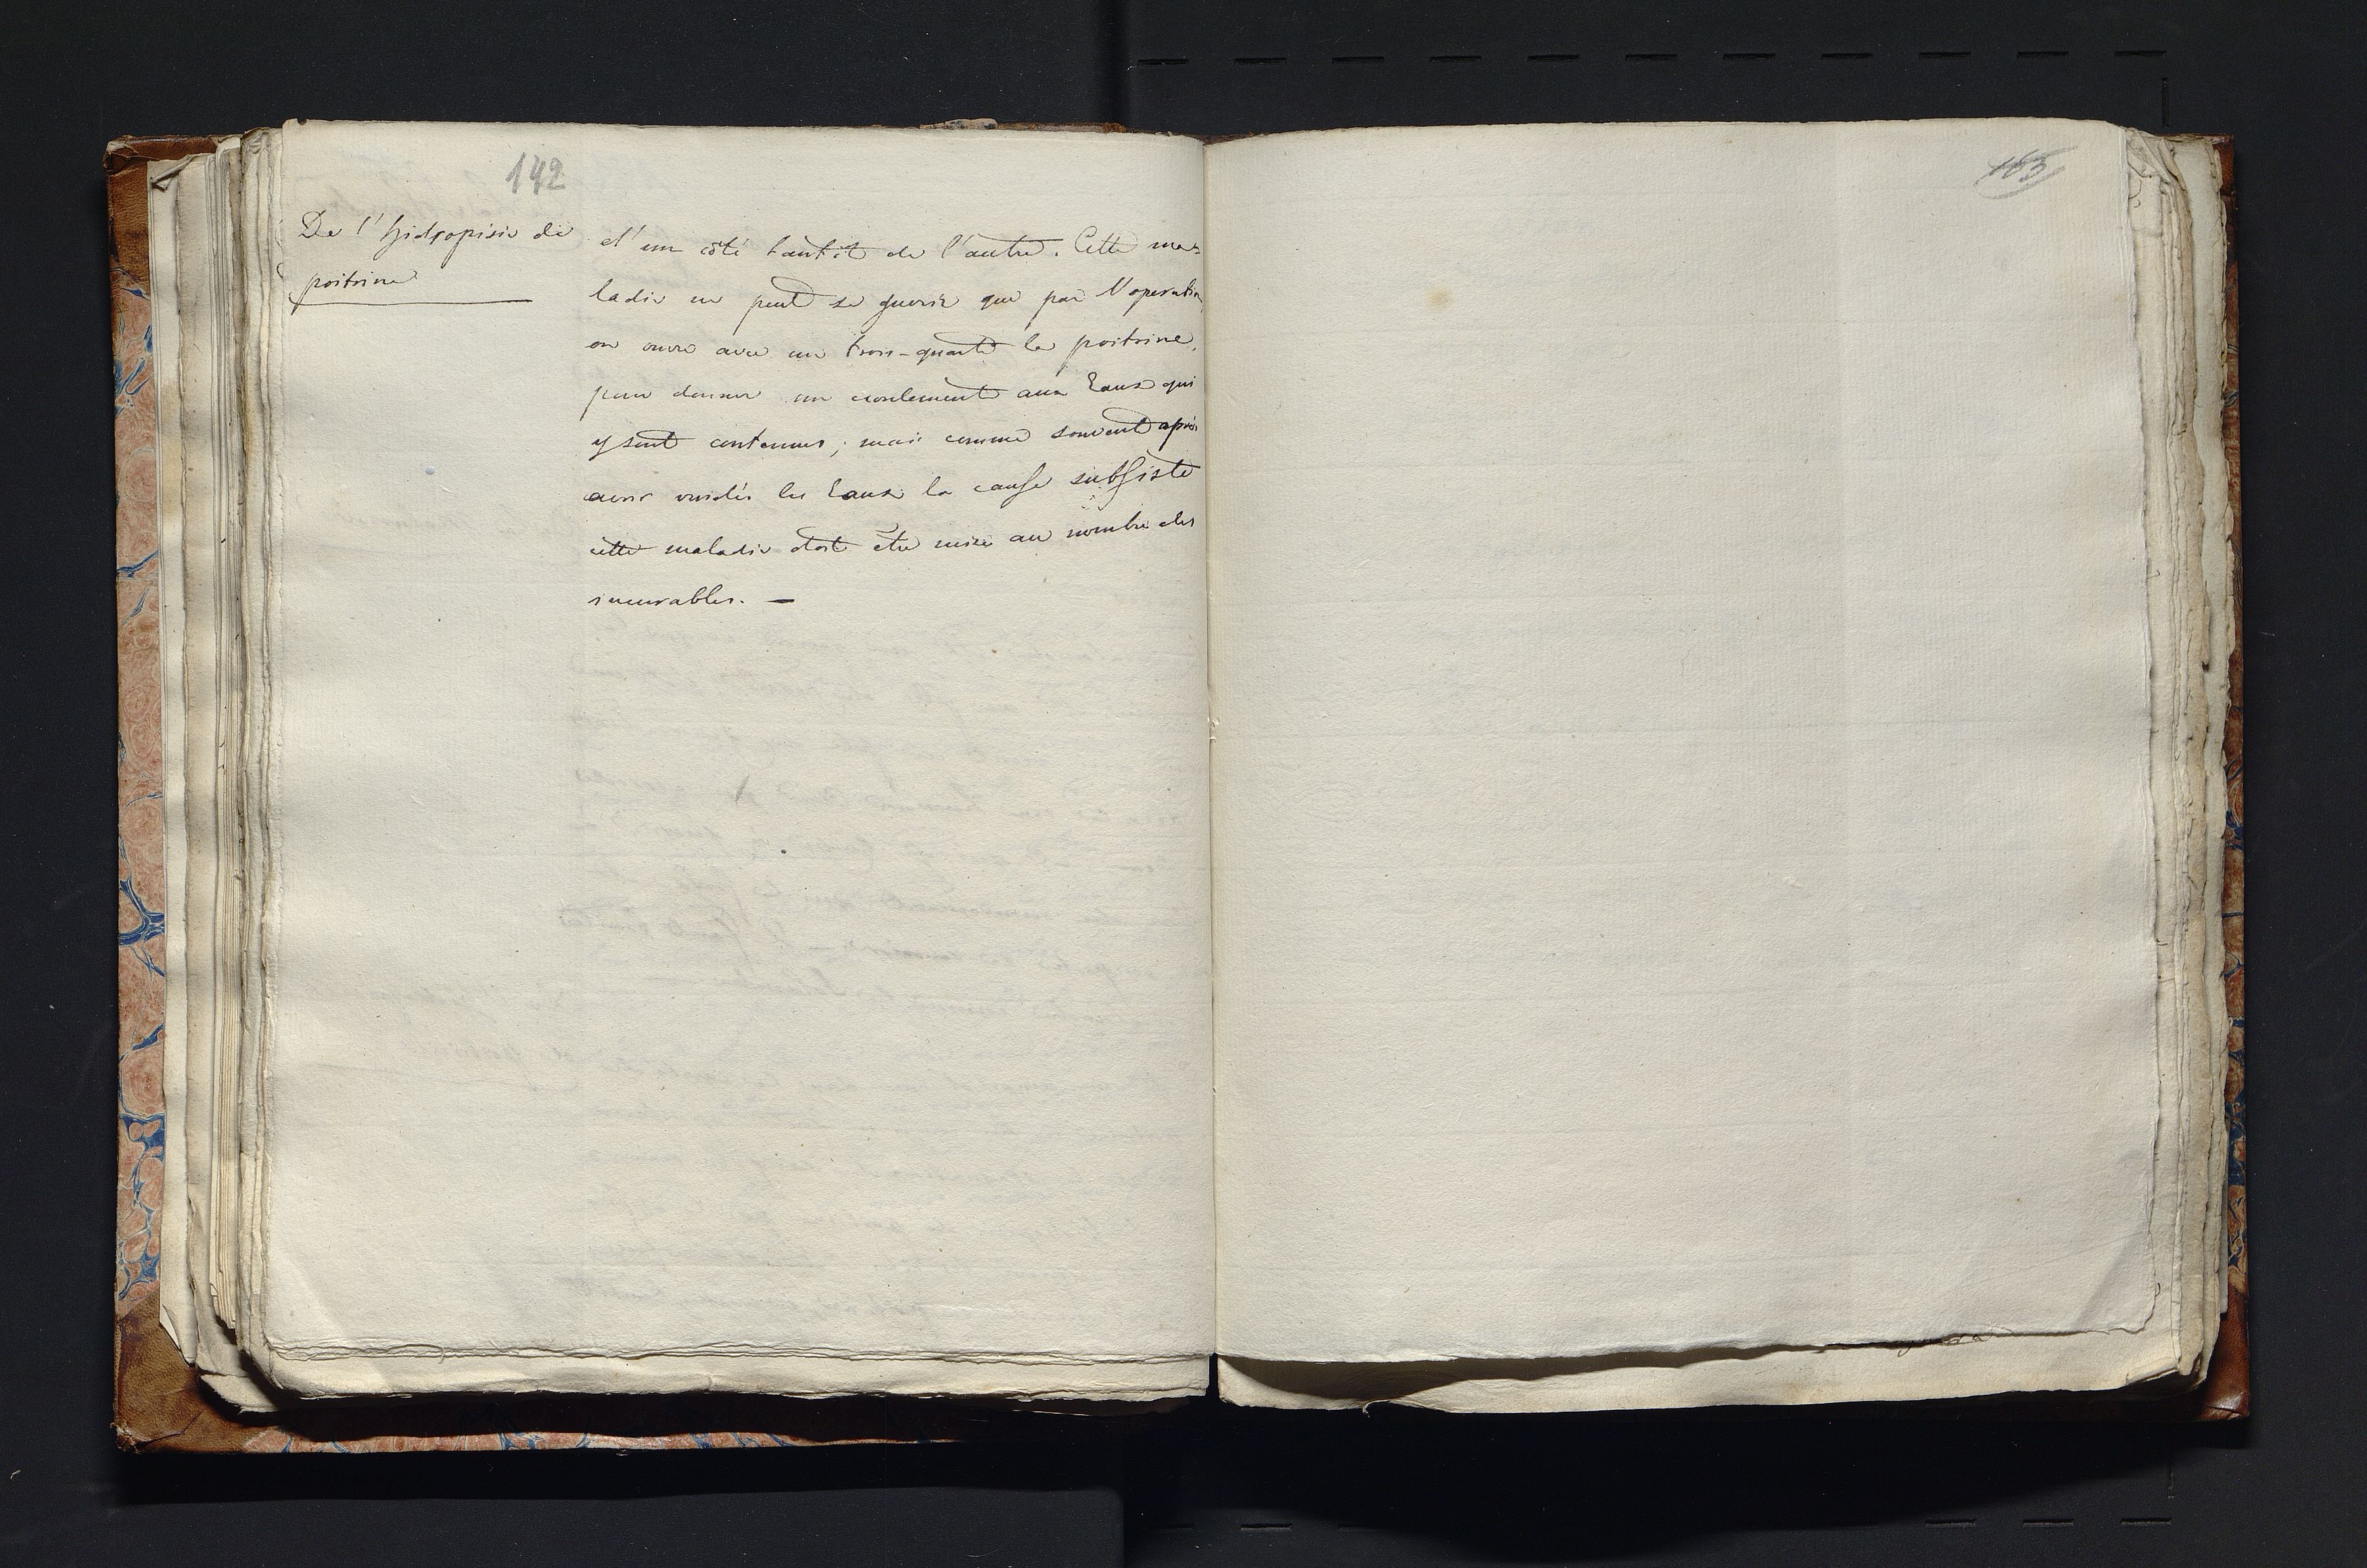 142
De l'hidropisie de
poitrine
d'un côté tantôt de l'autre. Cette ma-
ladie ne peut se guerir que par l'operation
on ouvre avec un trois-quarts la poitrine,
pour donner un ecoulement aux Eaux qui
y sont contenues; mais comme souvent après
avoir vuidés les Eaux la cause subsiste
cette maladie doit être mise au nombre des
incurables. —